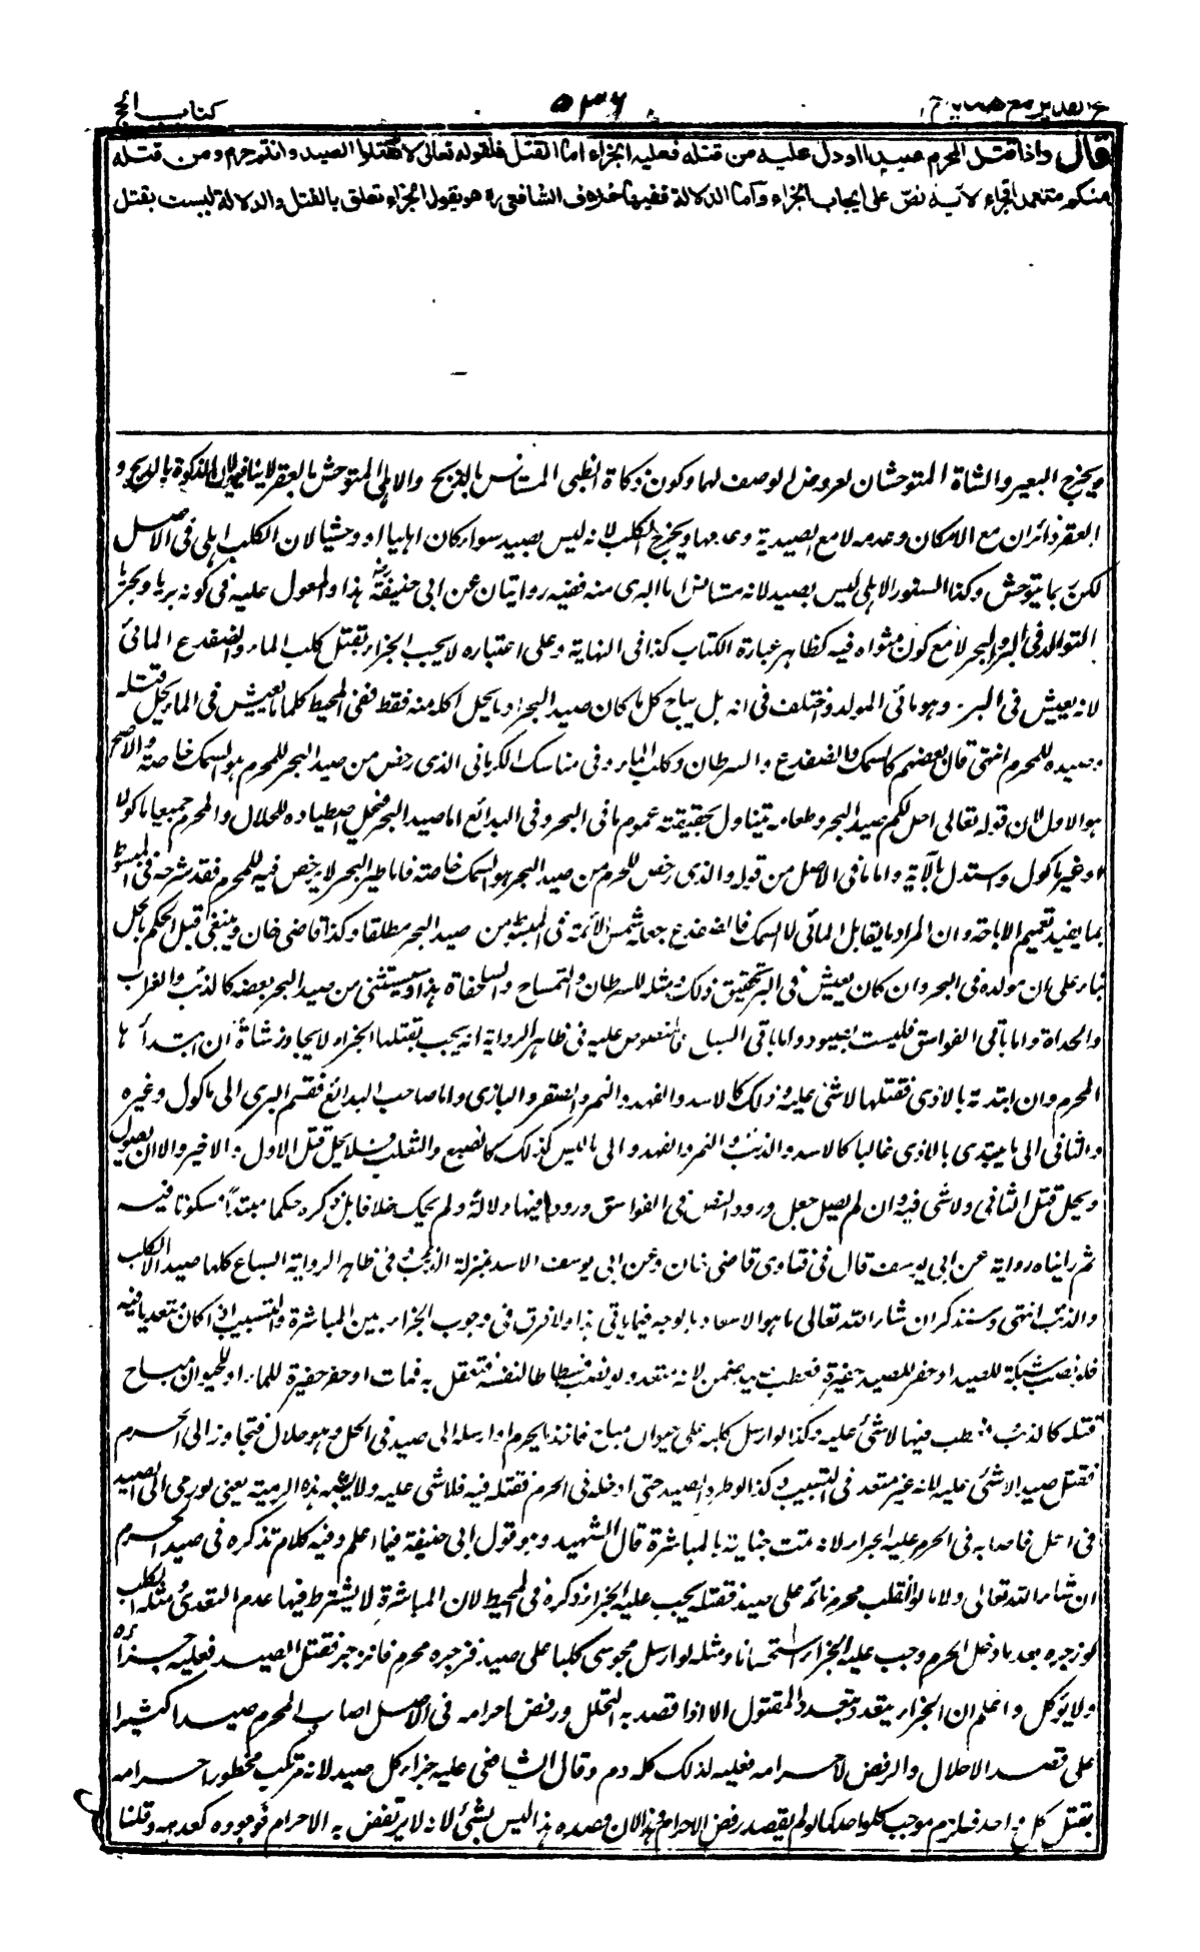 فتح القدير مع هدايہ ج ١ ٥٣٦ كتاب الحج
قال واذا قتل المحرم صيدا اودل عليه من قتله فعليه الجزاء اما القتل فلقوله تعالى لا تقتلوا الصيد وانتم حرم ومن قتله
منكم متعمدا فجزاء لآية نص على ايجاب الجزاء وأما الدلالة ففيها خلاف الشافعي رہ هو يقول الجزاء تعلق بالقتل والدلالة ليست بقتل
ويخرج البعير والشاة المتوحشان لعروض الوصف لهما وكون ذكاة الظبى المستانس بالذبح والاهلى المتوحش بالعقر لا ينافيه لان الذكوة بالذبح و
العقر دائران مع الامكان وعدمه لا مع الصيدية وعدمها ويخرج الكلب لانه ليس بصيد سواء كان اهليا او وحشيا لان الكلب اهلى فى الاصل
لكن ربما يتوحش وكذا السنور الاهلى ليس بصيد لانه مستانس اما البرى منه ففيه روايتان عن ابى حنيفة رہ هذا والمعول عليه فى كونه بريا وبحريا
التوالد فى البر والبحر لا مع كون مثواه فيه كظاهر عبارة الكتاب كذا فى النهاية وعلى اعتباره لا يجب الجزاء بقتل كلب الماء والضفدع المائى
لانه يعيش فى البر وهو مائى المولد واختلف فى انه بل يباح كل ما كان صيد البحر او ما يحل اكله منه فقط ففى المحيط كلما يعيش فى الماء يحل قتله
وصيده للمحرم انتهى قال بعضهم كالسمك والضفدع والسرطان وكلب الماء وفى مناسك الكرمانى الذى رخص من صيد البحر للمحرم هو السمك خاصة والاصح
هو الاول لان قوله تعالى احل لكم صيد البحر وطعامه يتناول بحقيقته عموم ما فى البحر وفى البدائع اما صيد البحر فيحل اصطياده للحلال والمحرم جميعا ماكولا
او غير ماكول واستدل بالآية واما ما فى الاصل من قوله والذى رخص للمحرم من صيد البحر هو السمك خاصة فاما طير البحر لا يرخص فيه للمحرم فقد شرحه فى المبسوط
بما يفيد تعميم الاباحة وان المراد ما يقابل المائى لا السمك فالضفدع جعله شمس الائمة فى المبسوط من صيد البحر مطلقا وكذا قاضى خان وينبغى قبل الحكم بالحل
بناء على ان مولده فى البحر وان كان يعيش فى البر تحقيق ذلك ومثله السرطان والتمساح والسلحفاة هذا ويستثنى من صيد البحر بعضه كالذئب والغراب
والحدأة واما باقى الفواسق فليست بصيود واما باقى السباع فالمنصوص عليه فى ظاهر الرواية انه يجب بقتلها الجزاء لا يجاوز شاة ان ابتدأ ها
المحرم وان ابتدته بالاذى فقتلها لا شئ عليه وذلك كالاسد والفهد والنمر والصقر والبازى واما صاحب البدائع فقسم البرى الى ماكول وغيره
والثانى الى ما يبتدى بالاذى غالبا كالاسد والذئب والنمر والفهد والى ما ليس كذلك كالضبع والثعلب فلا يحل قتل الاول والاخير والا ان يصول
ويحل قتل الثانى ولا شئ فيه وان لم يصل جعل ورود النص فى الفواسق ورودا فيها دلالة ولم يحك خلافا بل ذكره حكما مبتدأ مسكوتا فيه
ثم رايناه رواية عن ابى يوسف قال فى فتاوى قاضى خان وعن ابى يوسف الاسد بمنزلة الذئب فى ظاهر الرواية السباع كلها صيد الا الكلب
والذئب انتهى وسنذكر ان شاء الله تعالى ما هو الاسعد بالوجه فيما ياتى هذا ولا فرق فى وجوب الجزاء بين المباشرة والتسبيب اذا كان متعديا فيه
فلو نصب شبكة للصيد او حفر للصيد حفيرة فعطب صيد يضمن لانه متعد ولو نصب فسطاطا لنفسه فتعقل به فمات او حفر حفيرة للماء او للحيوان مباح
قتله كالذئب فعطب فيها لا شئ عليه وكذا لو ارسل كلبه على حيوان مباح فاخذ ما يحرم او ارسله الى صيد فى الحل وهو حلال فتجاوز الى الحرم
فقتل صيدا لا شئ عليه لانه غير متعد فى التسبيب وكذا لو طرد الصيد حتى ادخله فى الحرم فقتله فيه فلا شئ عليه ولا يشبه هذه الرمية يعنى لو رمى الى الصيد
فى الحل فاصابه فى الحرم عليه الجزاء لانه تمت جنايته بالمباشرة قال الشهيد وهو قول ابى حنيفة فيما اعلم وفيه كلام نذكره فى صيد الحرم
ان شاء الله تعالى ولا ما لو انقلب محرم نائم على صيد فقتله يجب عليه الجزاء ذكره فى المحيط لان المباشرة لا يشترط فيها عدم التعدى ومثله الكلب
لو زجره بعد ما دخل الحرم وجب عليه الجزاء استحسانا ومثله لو ارسل مجوسى كلبا على صيد فزجره محرم فانزجر فقتل الصيد فعليه جزاؤه
ولا يؤكل واعلم ان الجزاء يتعدد بتعدد المقتول الا اذا قصد به التحلل ورفض احرامه فى الاصل اصاب المحرم صيدا كثيرا
على قصد الاحلال والرفض لاحرامه فعليه لذلك كله دم وقال الشافعى عليه جزاء كل صيد لانه مرتكب محظور احرامه
بقتل كل واحد فيلزم موجب كل واحد كما لو لم يقصد رفض الاحرام وهذا لان قصده هذا ليس بشئ لانه لا يرتفض به الاحرام فوجوده كعدمه وقلنا